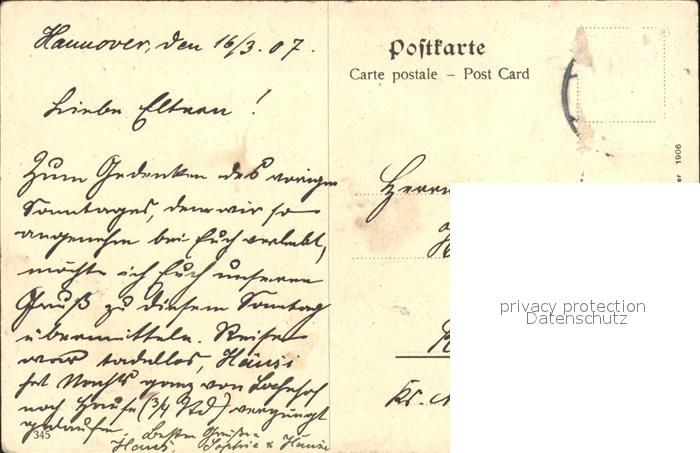 Hannover, den 16/3.07.
Liebe Eltern!
Zum Gedenken des vorigen
Sonntages, den wir so
angenehm bei Euch verlebt,
möchte ich Euch unseren
Gruß zu diesem Sonntag
übermitteln. Reise
war tadellos, Hänsi
ist Nachts ganz von Bahnhof
nach Hause (3/4 Std) vergnügt
gelaufen. Beste Grüße
Hans, Sophie & Hänsi
345
Postkarte
Carte postale – Post Card
Herrn
Kr.
1906
privacy protection
Datenschutz